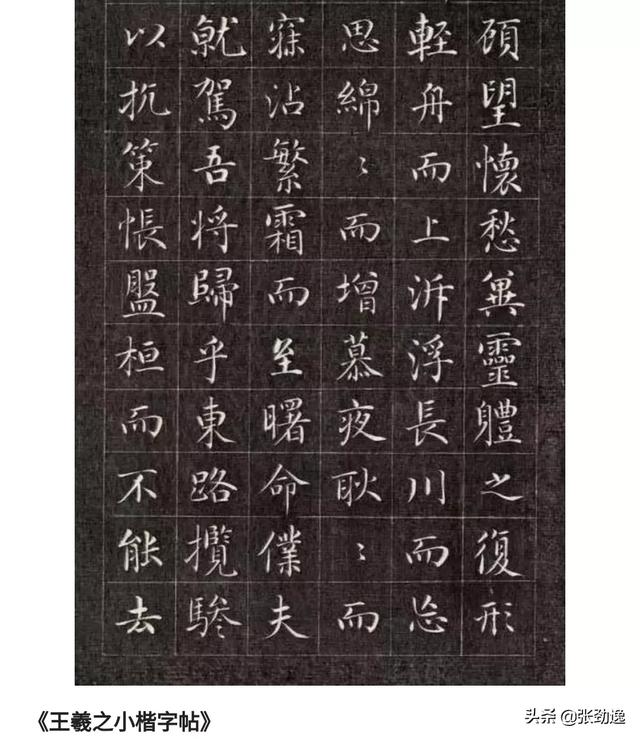 頋望懷愁兾靈體之復形
輕舟而上泝浮長川而忘
思綿〻而增慕夜耿〻而
寐沾繁霜而至曙命僕夫
就駕吾将歸乎東路攬驂
以抗策悵盤桓而不能去
《王羲之小楷字帖》
头条 @张劲逸